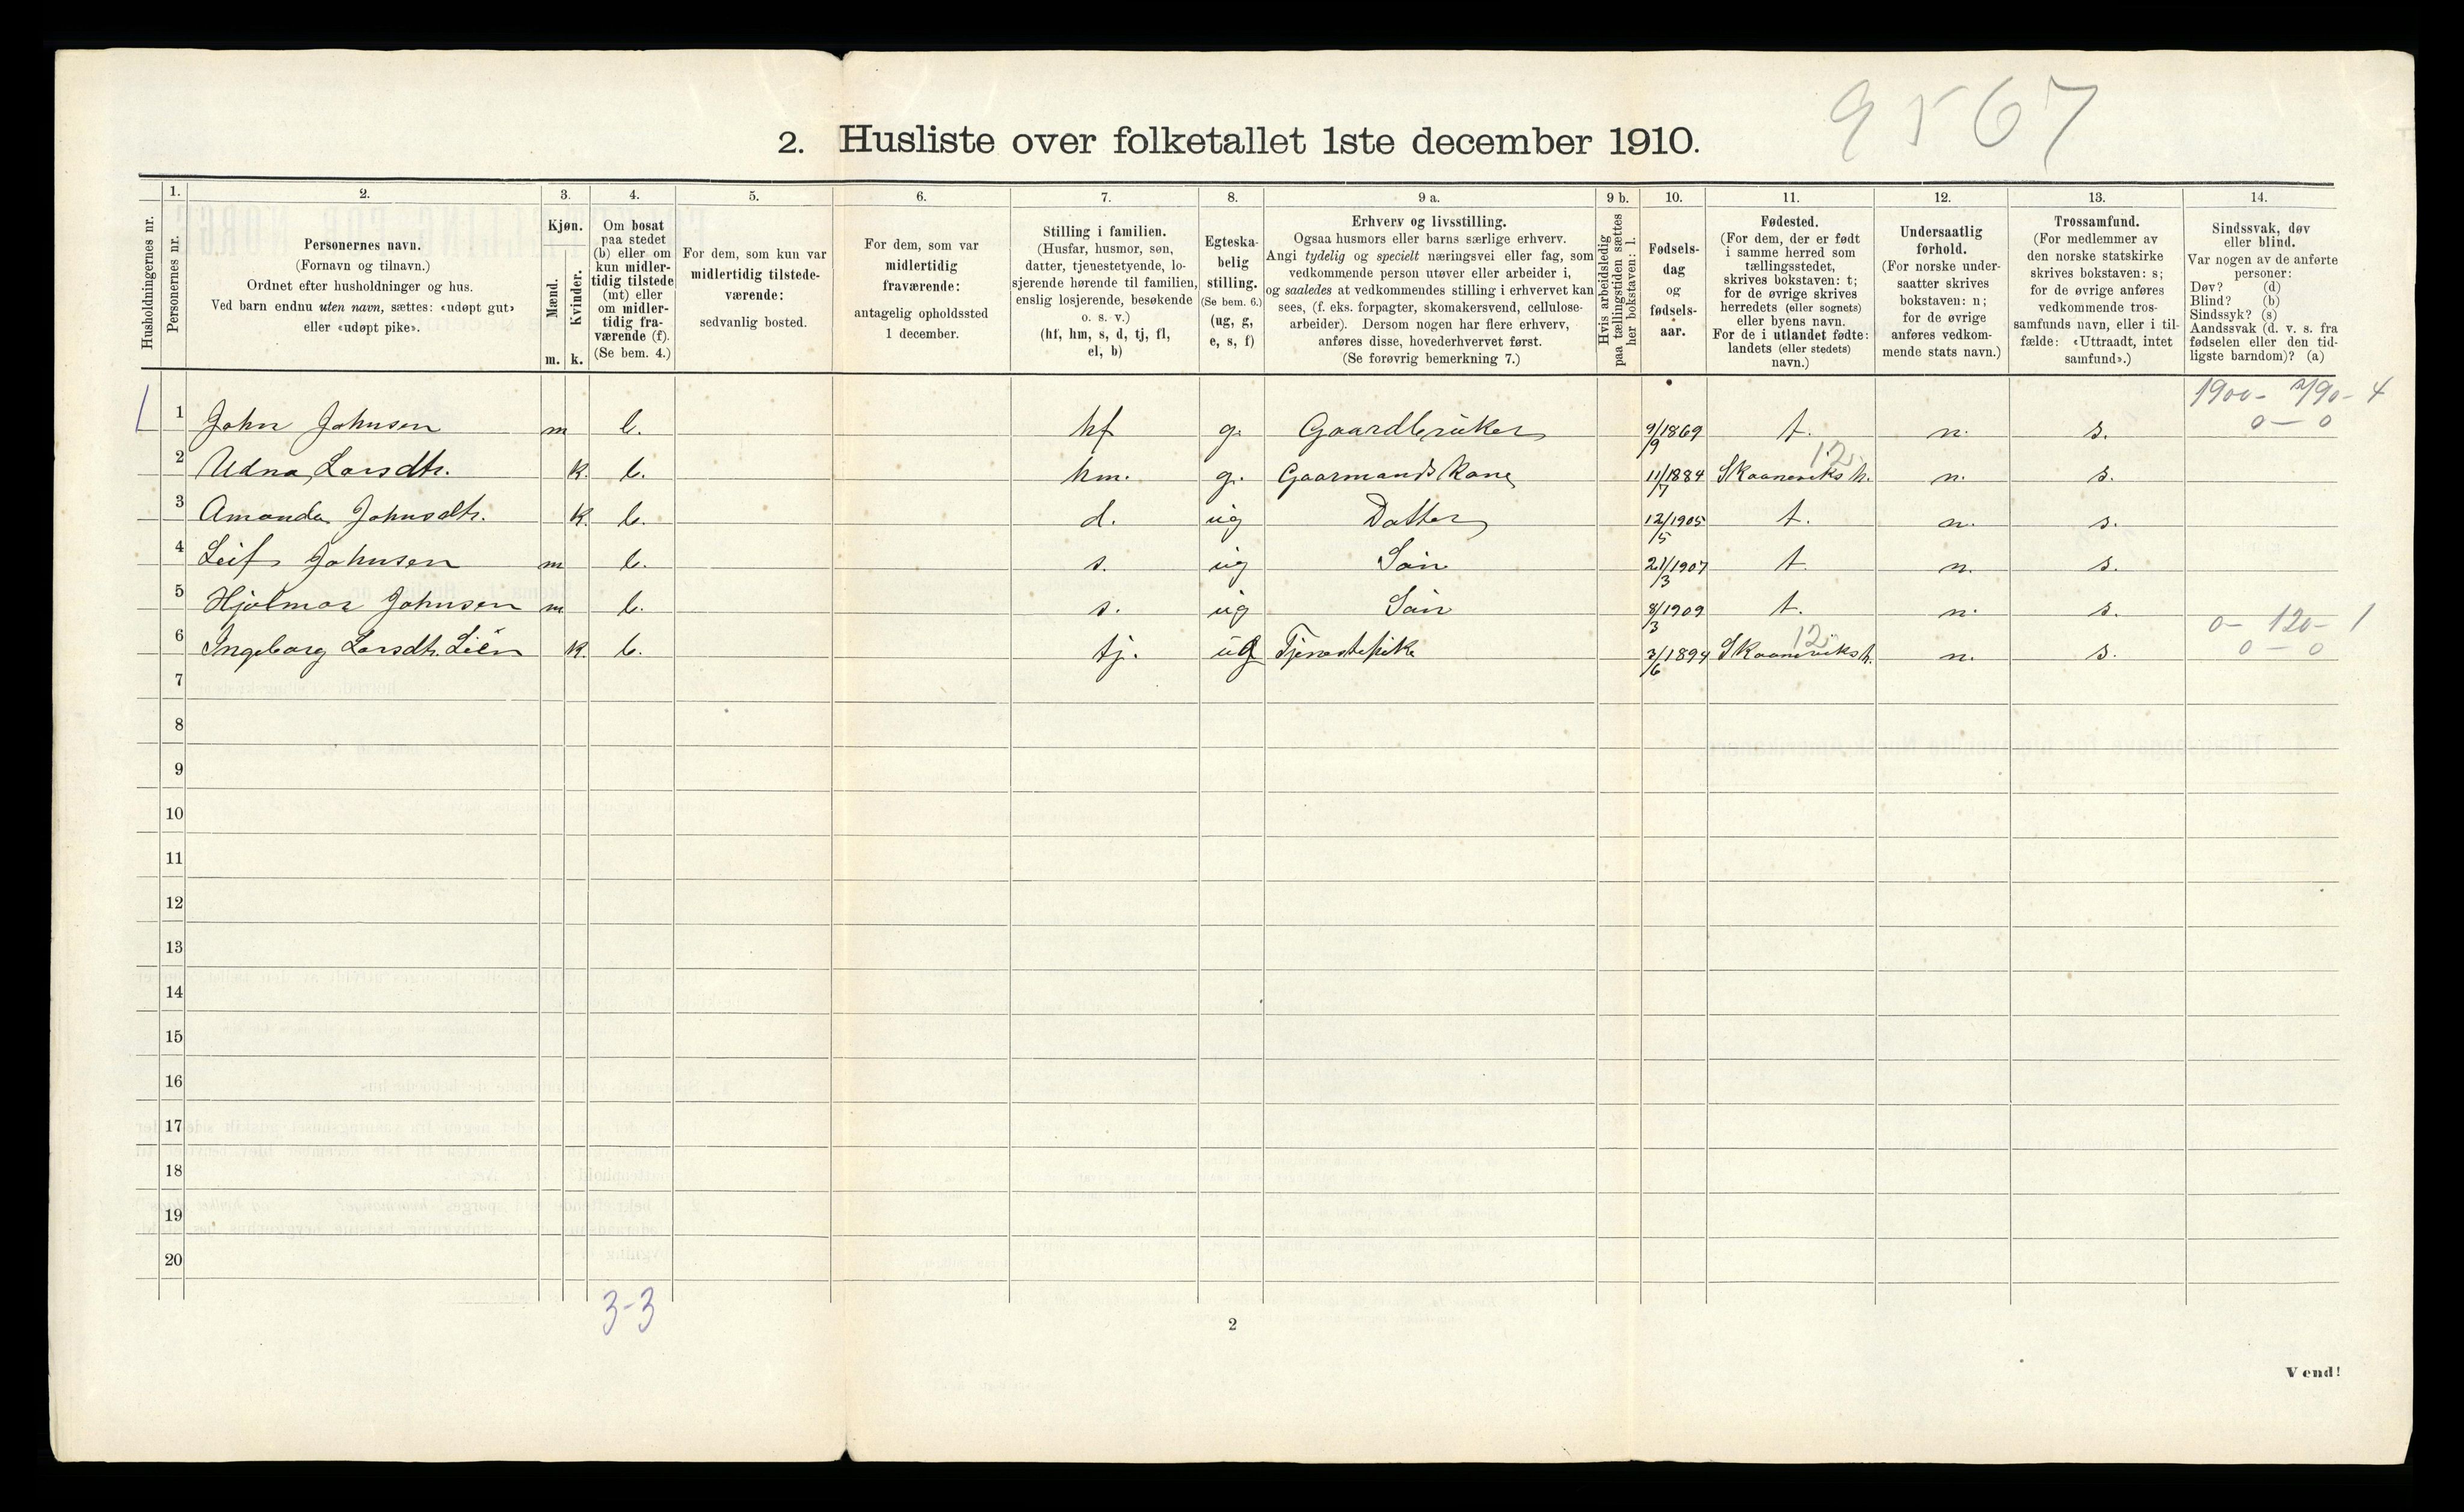 9567
2. Husliste over folketallet 1ste december 1910.
1. 2. 3. 4. 5. 6. 7. 8. 9 a. 9 b. 10. 11. 12. 13. 14.
Husholdningernes nr.
Personernes nr.
Personernes navn.
(Fornavn og tilnavn.)
Ordnet efter husholdninger og hus.
Ved barn endnu uten navn, sættes: «udøpt gut»
eller «udøpt pike».
Kjøn.
Mænd.
Kvinder.
m. k.
Om bosat
paa stedet
(b) eller om
kun midler-
tidig tilstede
(mt) eller
om midler-
tidig fra-
værende (f).
(Se bem. 4.)
For dem, som kun var
midlertidig tilstede-
værende:
sedvanlig bosted.
For dem, som var
midlertidig
fraværende:
antagelig opholdssted
1 december.
Stilling i familien.
(Husfar, husmor, søn,
datter, tjenestetyende, lo-
sjerende hørende til familien,
enslig losjerende, besøkende
o. s. v.)
(hf, hm, s, d, tj, fl,
el, b)
Egteska-
belig
stilling.
(Se bem. 6.)
(ug, g,
e, s, f)
Erhverv og livsstilling.
Ogsaa husmors eller barns særlige erhverv.
Angi tydelig og specielt næringsvei eller fag, som
vedkommende person utøver eller arbeider i,
og saaledes at vedkommendes stilling i erhvervet kan
sees, (f. eks. forpagter, skomakersvend, cellulose-
arbeider). Dersom nogen har flere erhverv,
anføres disse, hovederhvervet først.
(Se forøvrig bemerkning 7.)
Hvis arbeidsledig
paa tællingstiden sættes
her bokstaven: l.
Fødsels-
dag
og
fødsels-
aar.
Fødested.
(For dem, der er født
i samme herred som
tællingsstedet,
skrives bokstaven: t;
for de øvrige skrives
herredets (eller sognets)
eller byens navn.
For de i utlandet fødte:
landets (eller stedets)
navn.)
Undersaatlig
forhold.
(For norske under-
saatter skrives
bokstaven: n;
for de øvrige
anføres vedkom-
mende stats navn.)
Trossamfund.
(For medlemmer av
den norske statskirke
skrives bokstaven: s;
for de øvrige anføres
vedkommende tros-
samfunds navn, eller i til-
fælde: «Uttraadt, intet
samfund».)
Sindssvak, døv
eller blind.
Var nogen av de anførte
personer:
Døv? (d)
Blind? (b)
Sindssyk? (s)
Aandssvak (d. v. s. fra
fødselen eller den tid-
ligste barndom)? (a)
1900- 790- 4
1 John Johnsen m b. hf g. Gaardbruker 9/9 1869 t. n. s. 0 - 0
12
2 Udna Larsdtr. k. b. hm. g. Gaarmands kone 11/7 1884 Skaaneviks h. n. s.
3 Amanda Johnsdtr. k. b. d. ug Datter 12/5 1905 t. n. s.
4 Leif Johnsen m b. s. ug Søn 21/3 1907 t. n. s.
5 Hjalmar Johnsen m b. s. ug Søn 8/3 1909 t. n. s.
0- 120- 1
12
6 Ingeborg Larsdtr. Lien k. b. tj. ug Tjenestepike 3/6 1894 Skaaneviks h. n. s. 0 - 0
7
8
9
10
11
12
13
14
15
16
17
18
19
20
3-3
2
Vend!